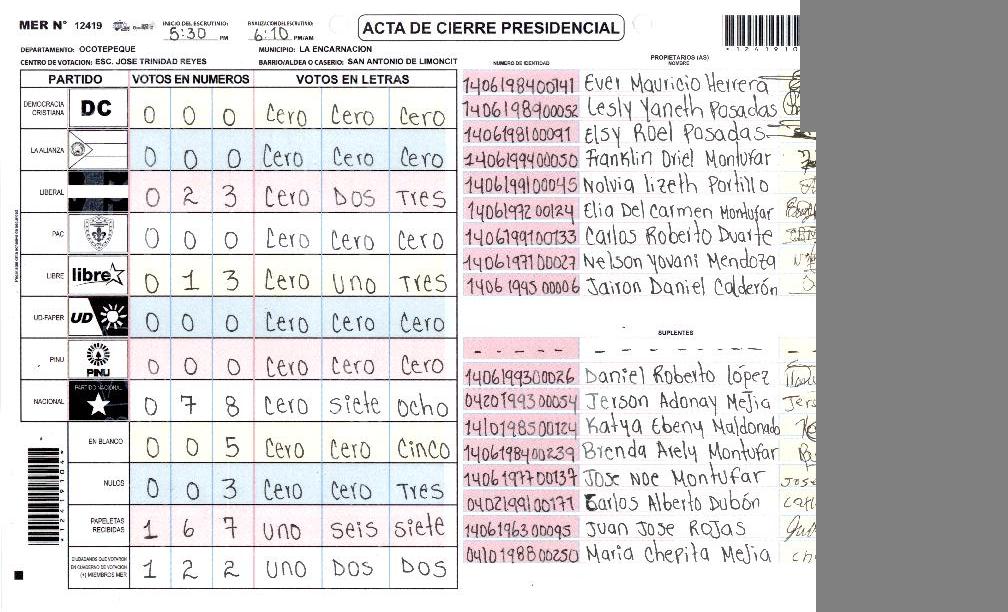 MER N° 12419 INICIO DEL ESCRUTINIO: 5:30 PM FINALIZACION DEL ESCRUTINIO: 6:10 PM/AM ACTA DE CIERRE PRESIDENCIAL
DEPARTAMENTO: OCOTEPEQUE MUNICIPIO: LA ENCARNACION
CENTRO DE VOTACION: ESC. JOSE TRINIDAD REYES BARRIO/ALDEA O CASERIO: SAN ANTONIO DE LIMONCIT
PARTIDO VOTOS EN NUMEROS VOTOS EN LETRAS
DEMOCRACIA CRISTIANA DC 0 0 0 Cero Cero Cero
LA ALIANZA 0 0 0 Cero Cero Cero
LIBERAL 0 2 3 Cero Dos Tres
PAC 0 0 0 Cero Cero Cero
LIBRE libre 0 1 3 Cero uno Tres
UD-FAPER UD 0 0 0 Cero Cero Cero
PINU PINU 0 0 0 Cero Cero Cero
NACIONAL PARTIDO NACIONAL 0 7 8 Cero siete ocho
EN BLANCO 0 0 5 Cero Cero Cinco
NULOS 0 0 3 Cero Cero Tres
PAPELETAS RECIBIDAS 1 6 7 uno seis siete
CIUDADANOS QUE VOTARON EN CUADERNO DE VOTACION (+) MIEMBROS MER 1 2 2 uno Dos Dos
*12419104*
*1241910
NUMERO DE IDENTIDAD PROPIETARIOS (AS) NOMBRE
1406198400141 Ever Mauricio Herrera
1406198900052 Lesly Yaneth Posadas
1406198100091 Elsy Roel Posadas
1406199400050 Franklin Oriel Montufar
1406199100045 Nolvia lizeth Portillo
1406197200124 Elia Del Carmen Montufar
1406199100133 Carlos Roberto Duarte
1406197100027 Nelson Yovani Mendoza
1406199500006 Jairon Daniel Calderón
SUPLENTES
- - - - - - - - - - - -
1406199300026 Daniel Roberto López
0420199300054 Jerson Adonay Mejia
1410198500124 Katya Ebeny Maldonado
1406198400239 Brenda Arely Montufar
1406197700137 Jose Noe Montufar
0402199100171 Carlos Alberto Dubón
1406196300095 Juan Jose Rojas
0410198800250 Maria Chepita Mejia